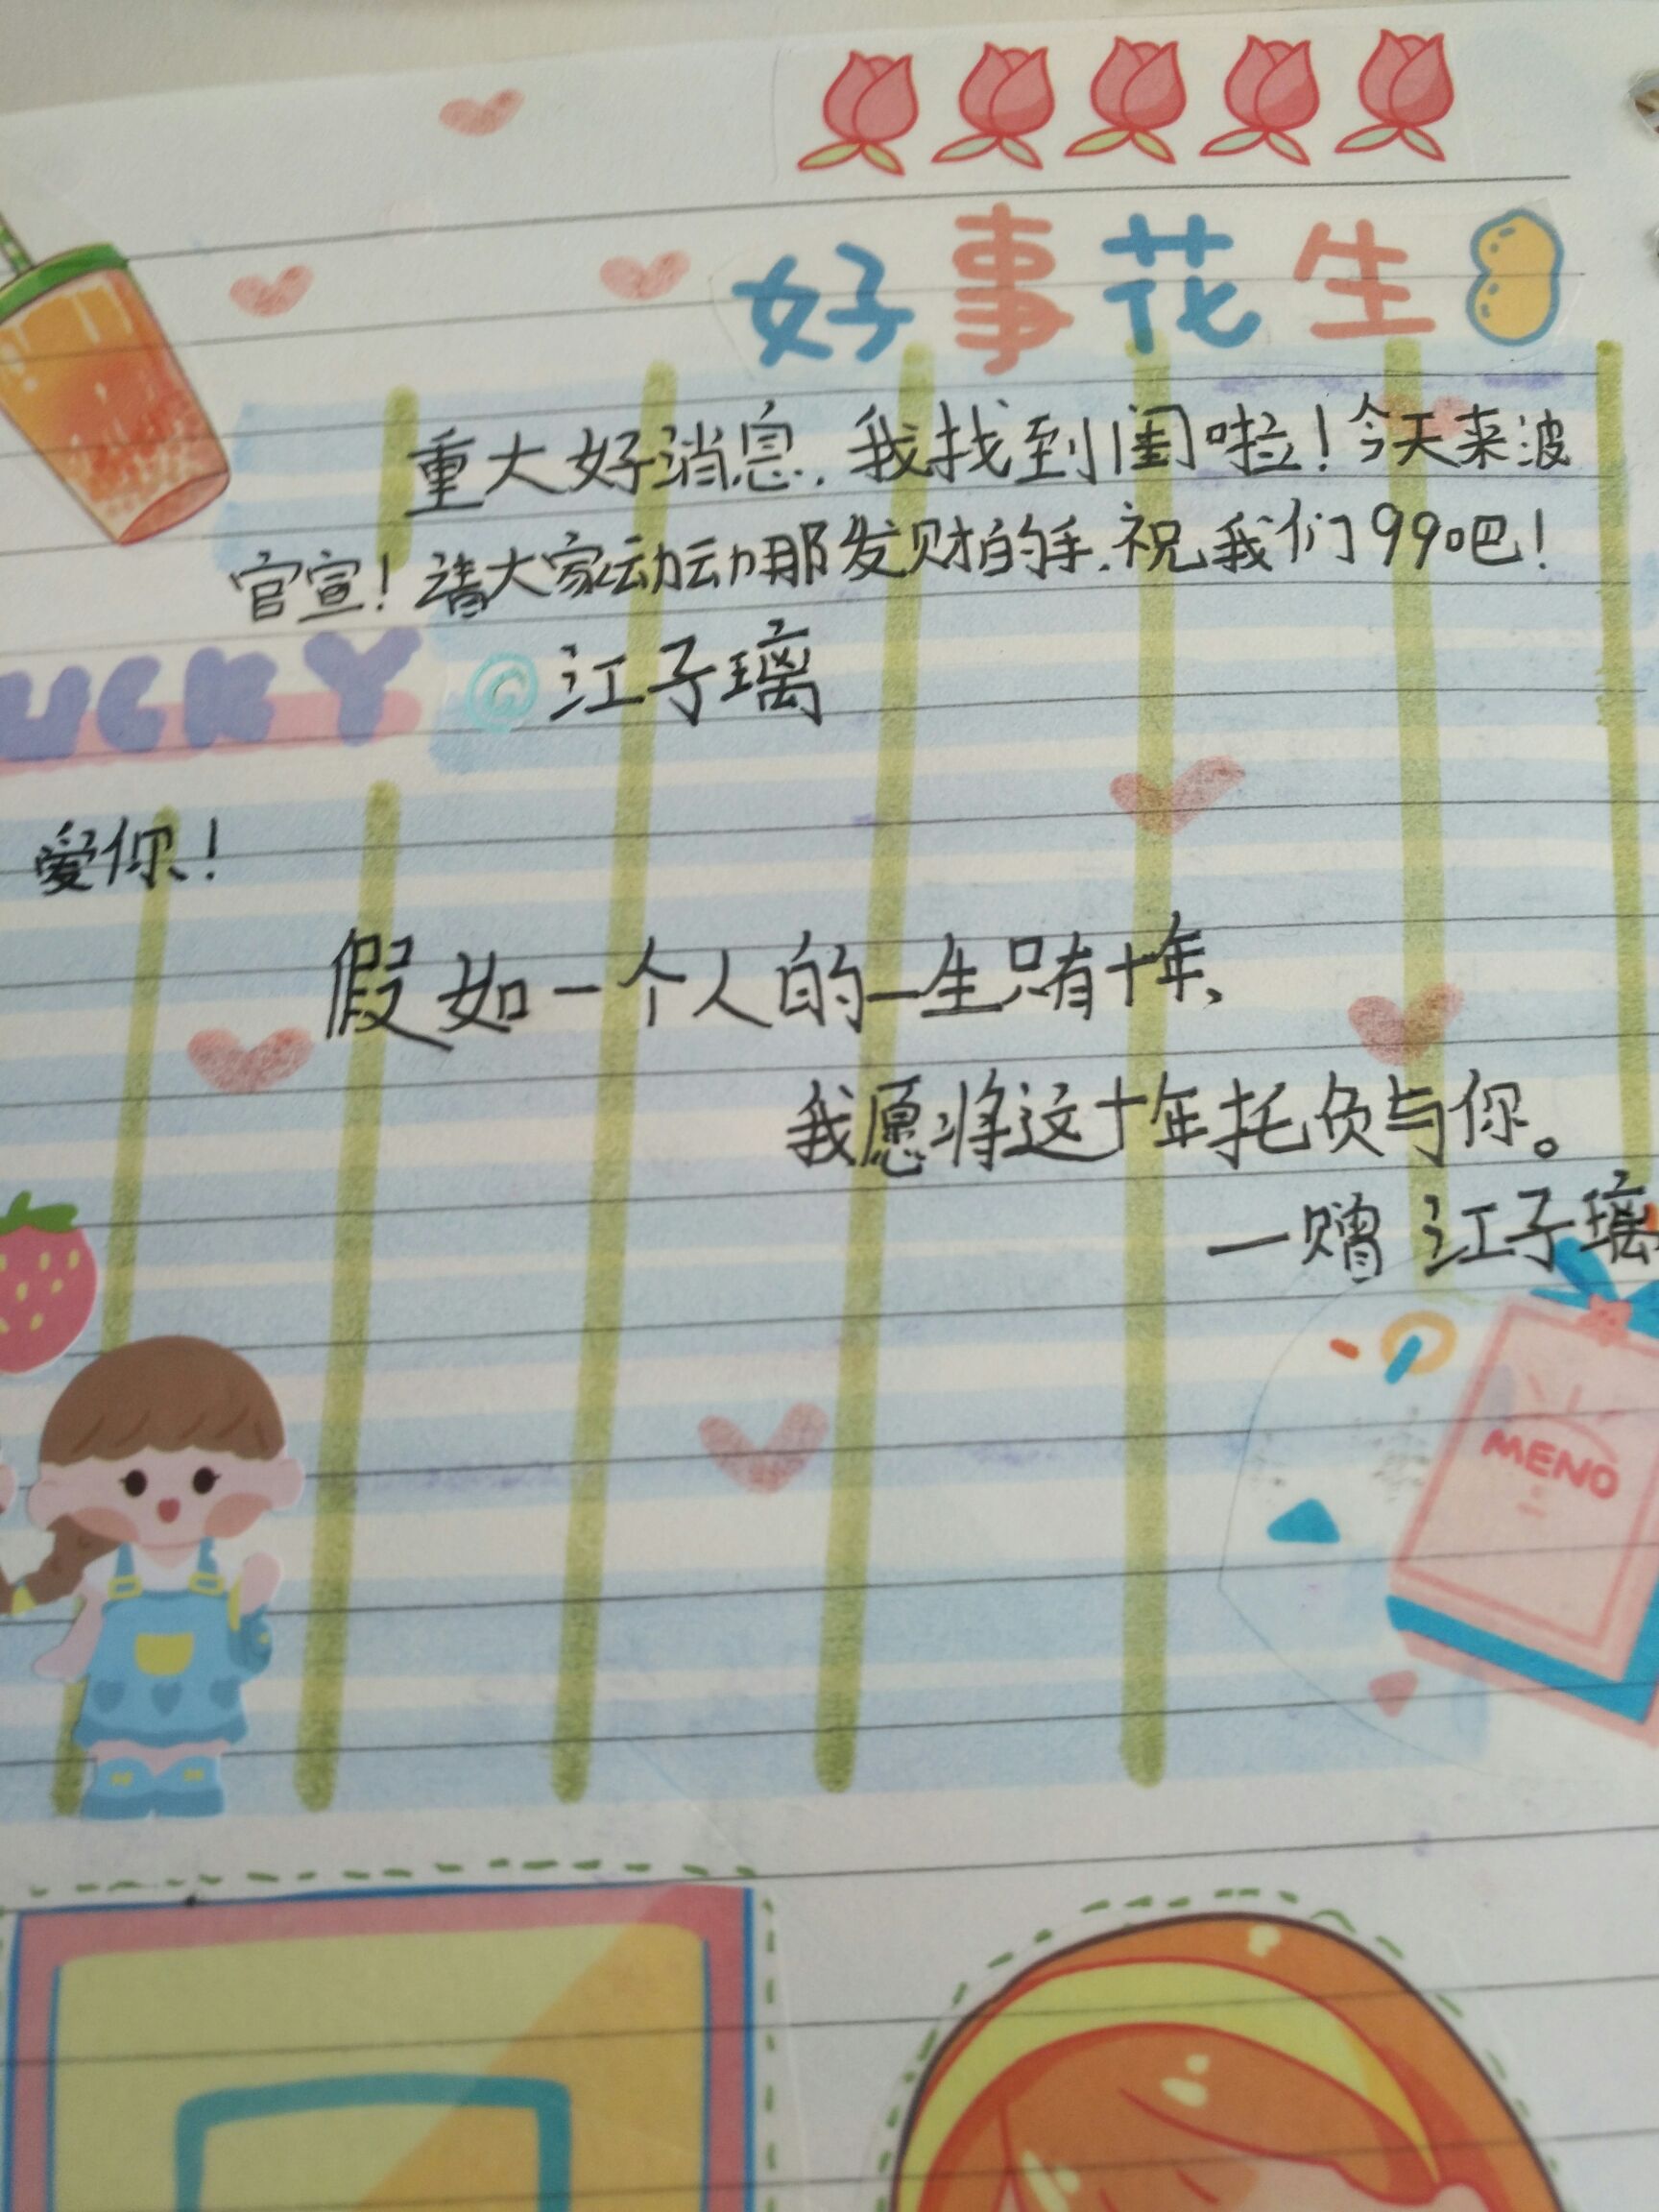 好事花生
重大好消息，我找到闺啦！今天来波
官宣！请大家动动那发财的手，祝我们99吧！
UCKY @江子璃
爱你！
假如一个人的一生只有十年、
我愿将这十年托负与你。
一赠 江子璃
MENO